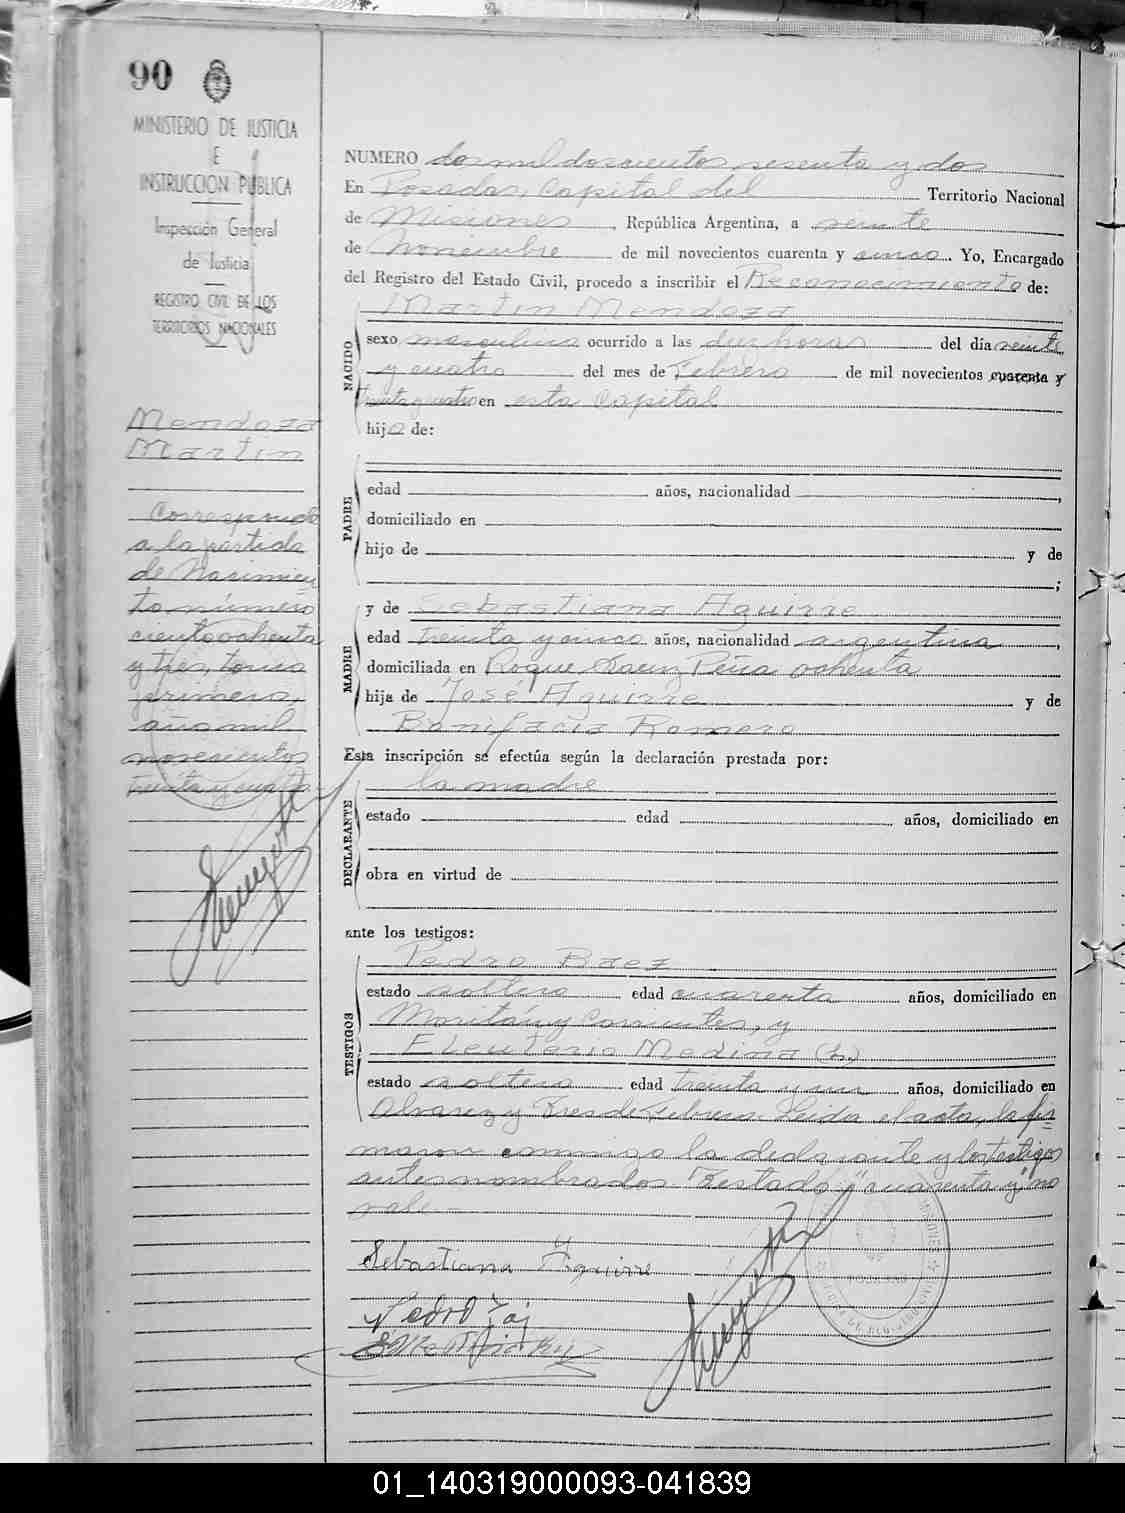 90
MINISTERIO DE JUSTICIA
E
INSTRUCCION PUBLICA
Inspección General
de Justicia
REGISTRO CIVIL DE LOS
TERRITORIOS NACIONALES
Mendoza
Martin
Corresponde
a la partida
de Nacimien
to número
ciento ochenta
y tres, tomo
primero,
año mil
novecientos
treinta y cuatro
NUMERO dos mil doscientos sesenta y dos
En Posadas, Capital del Territorio Nacional
de Misiones, República Argentina, a veinte
de Noviembre de mil novecientos cuarenta y cinco. Yo, Encargado
del Registro del Estado Civil, procedo a inscribir el Reconocimiento de:
NACIDO
Martin Mendoza
sexo masculino ocurrido a las diez horas del día veinte
y cuatro del mes de Febrero de mil novecientos cuarenta y
treinta y cuatro en esta Capital
hijo de:
PADRE
edad años, nacionalidad ,
domiciliado en
hijo de y de
;
MADRE
y de Sebastiana Aguirre
edad treinta y cinco años, nacionalidad argentina,
domiciliada en Roque Saenz Peña ochenta
hija de José Aguirre y de
Bonifacia Romero
Esta inscripción se efectúa según la declaración prestada por:
DECLARANTE
la madre
estado edad años, domiciliado en
obra en virtud de
ante los testigos:
TESTIGOS
Pedro Baez
estado soltero edad cuarenta años, domiciliado en
y Corrientes, y
Eleuterio Medina (h)
estado soltero edad treinta y un años, domiciliado en
Alvarez y Tres de Febrero. Leida el acta, la fir
maron conmigo la declarante y los testigos
antes nombrados. Testado "cuarenta y" no
vale.-
Sebastiana Aguirre
Pedro
01_140319000093-041839